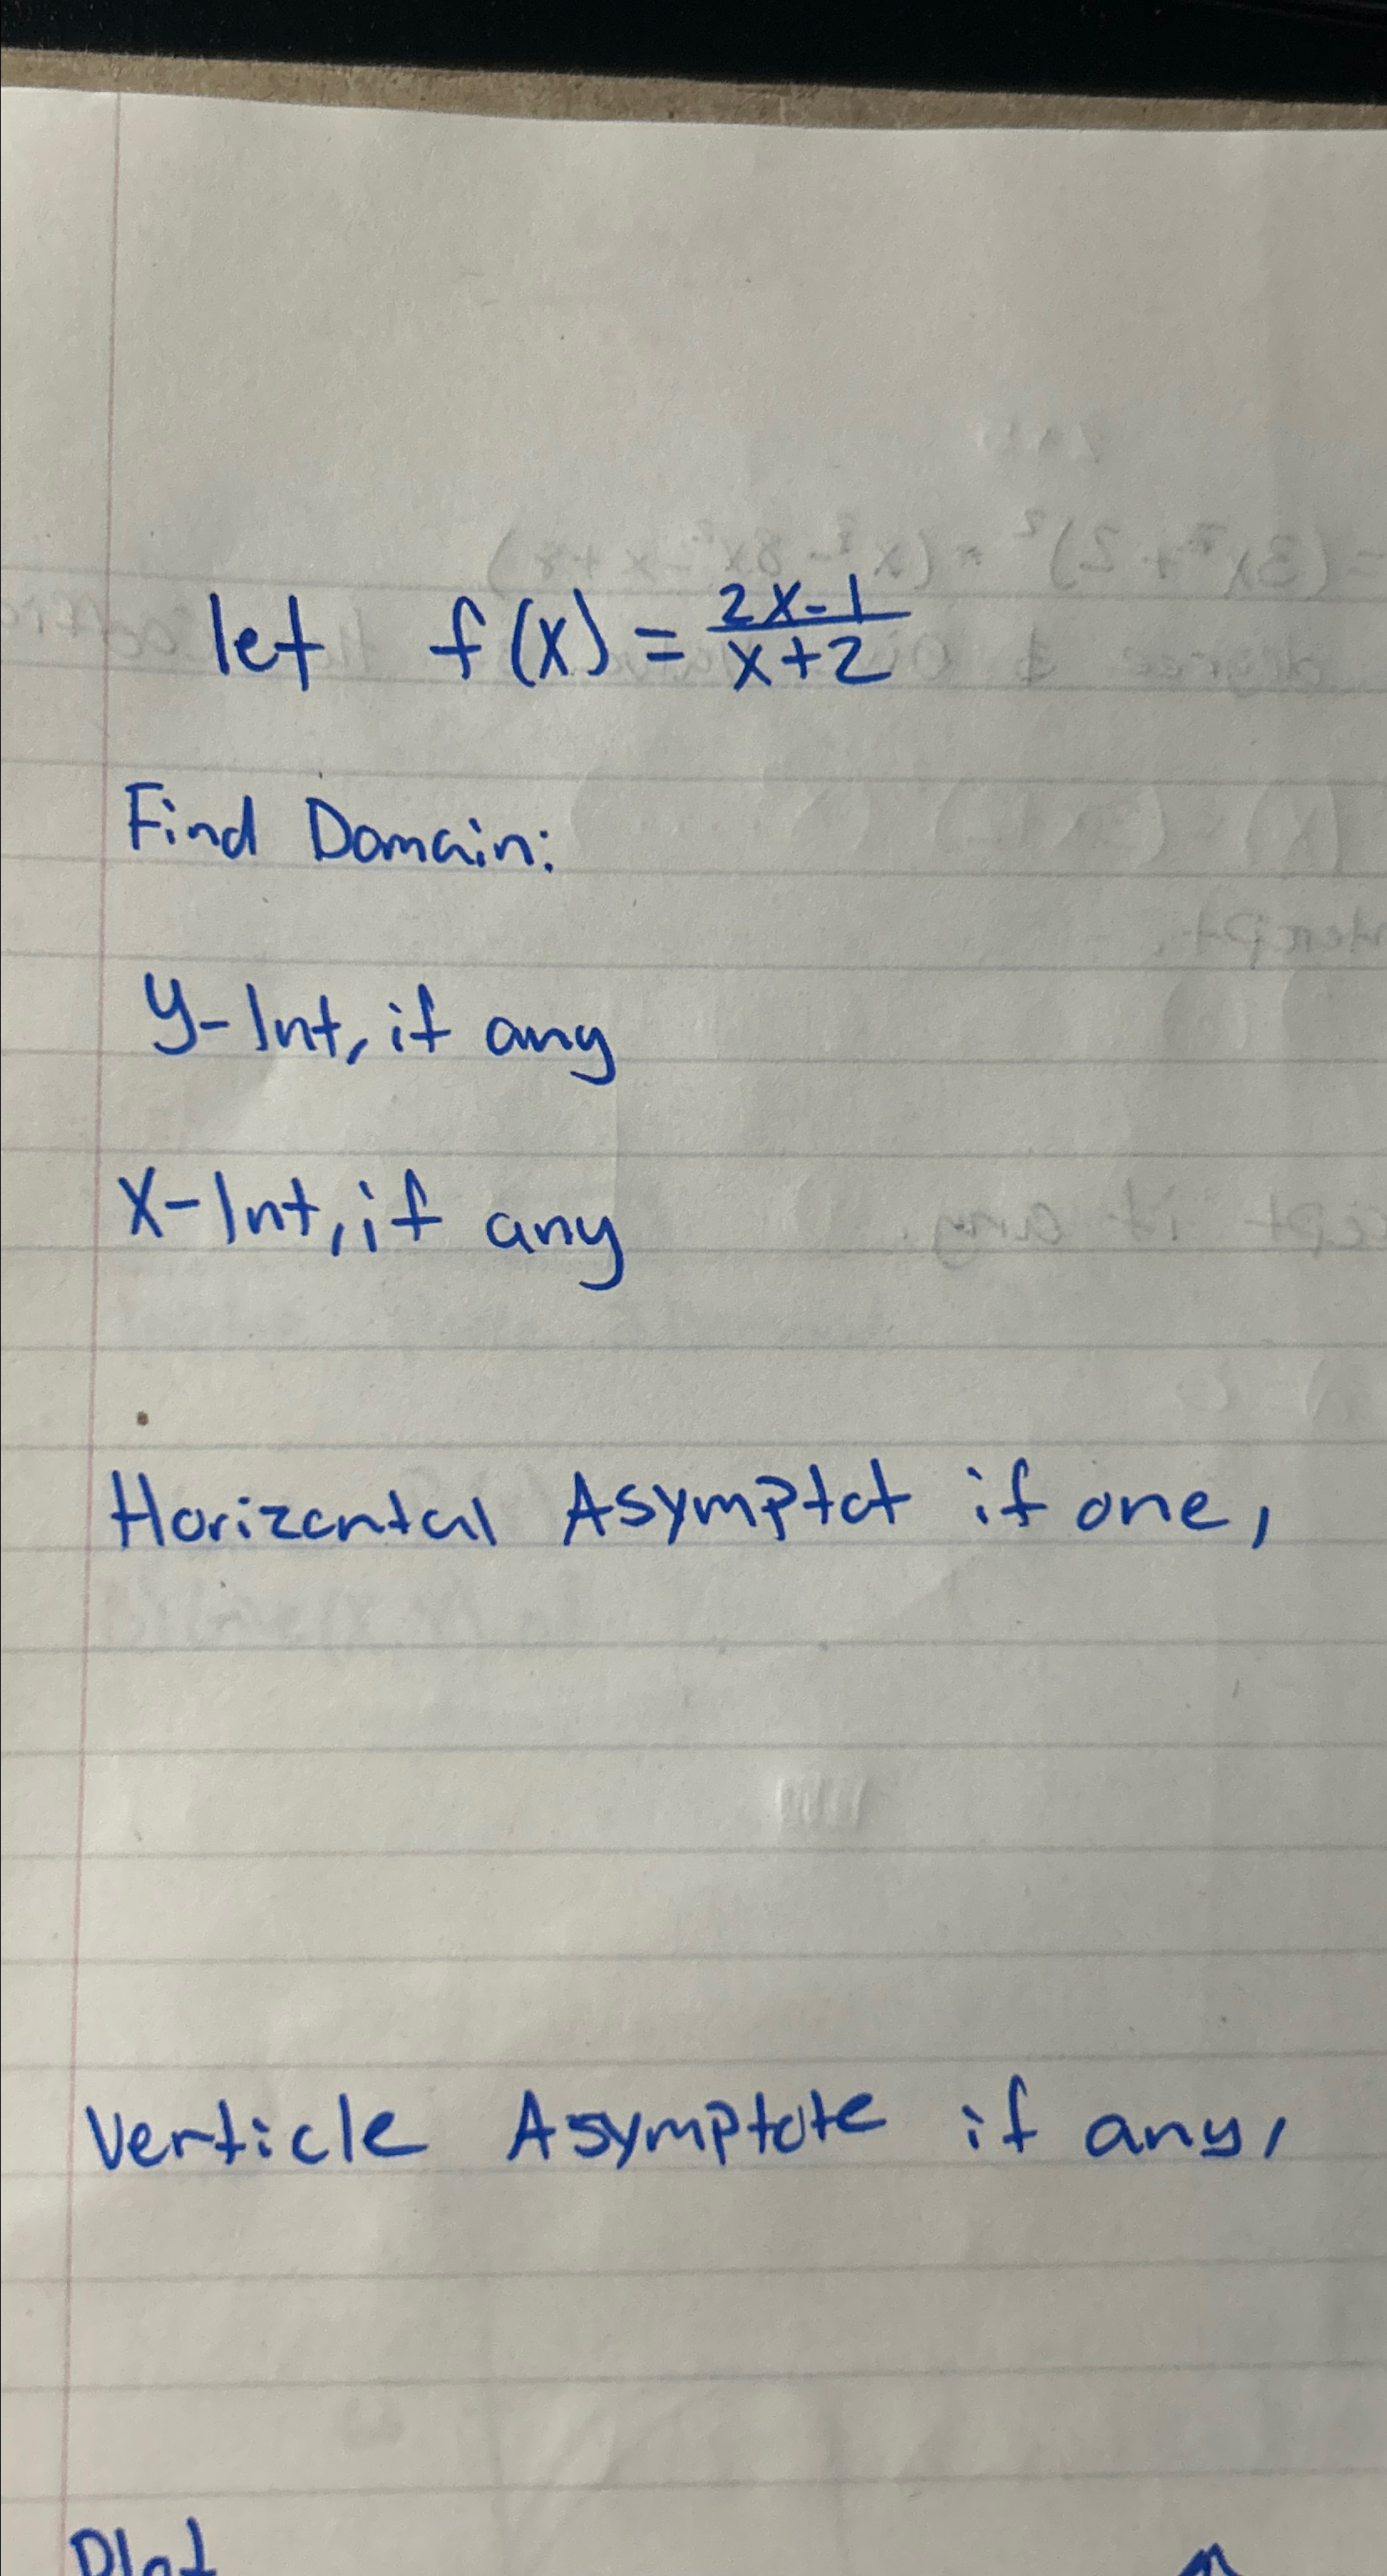 let f(x) = \frac{2x-1}{x+2}
Find Domain:
y-Int, if any
x-Int, if any
Horizontal Asymptot if one,
Verticle Asymptote if any,
Plot